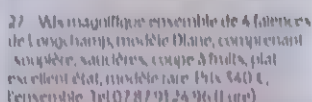 27 Vds magnifique ensemble de 4 faïences
de Longchamps, modèle Diane, comprenant
soupière, saucières, coupe à fruits, plat
excellent état, modèle rare Prix 840 €,
l'ensemble Tél 07 87 91 24 96 (Lure)